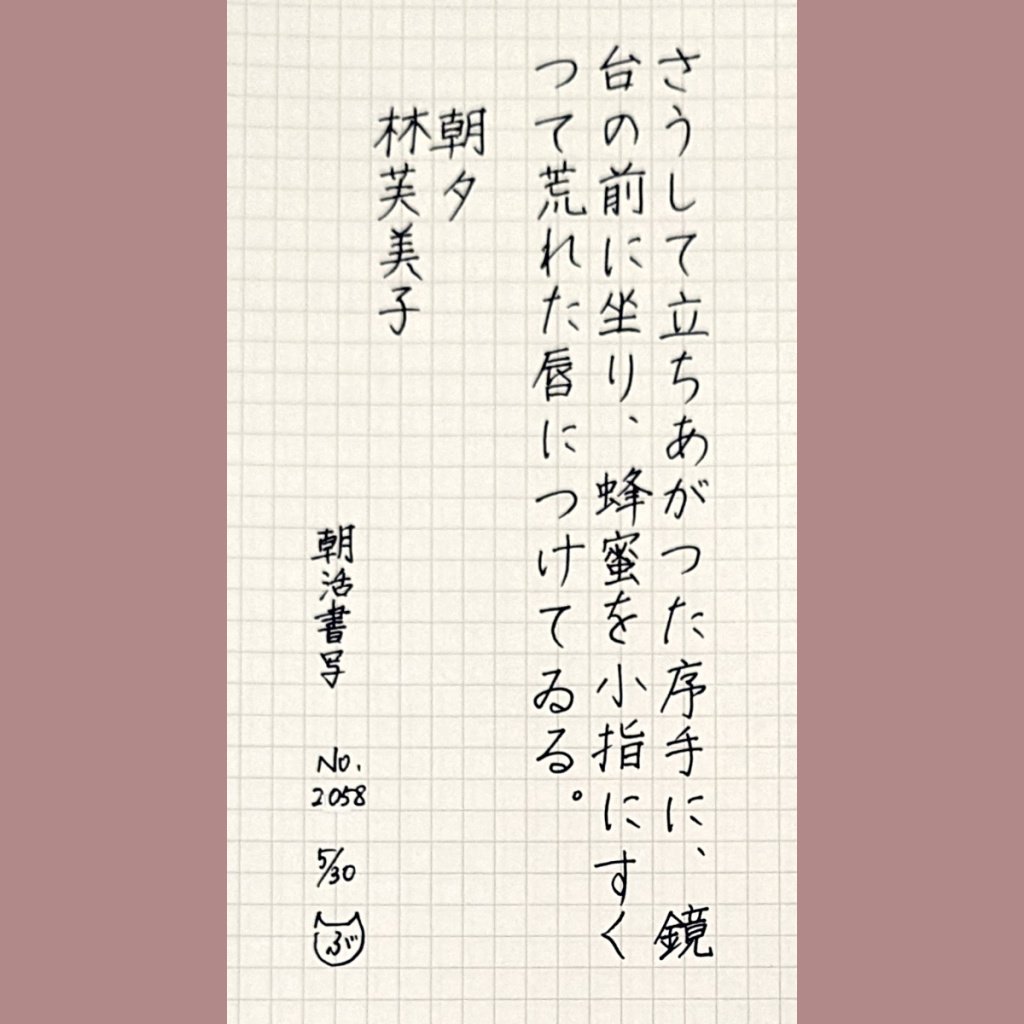 さうして立ちあがつた序手に、鏡
台の前に坐り、蜂蜜を小指にすく
つて荒れた唇につけてゐる。
朝夕
林芙美子
朝活書写 No.2058 5/30 ぶ